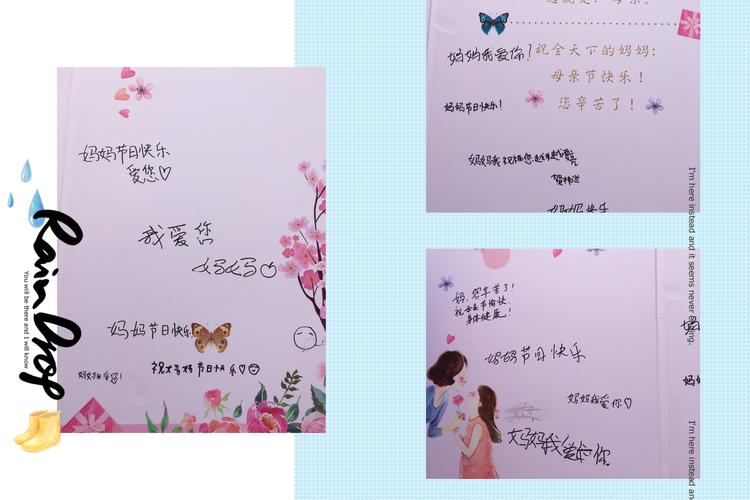 妈妈节日快乐
爱您♡
我爱您
妈妈
妈妈节日快乐
妈妈我爱您!
祝妈妈节日快乐♡
Rain Drop
You will be there and I will know
妈妈我爱你!
祝全天下的妈妈:
母亲节快乐!
您辛苦了!
妈妈节日快乐!
妈妈我祝福您越来越漂亮
妈妈快乐
妈,您辛苦了!
祝母亲节愉快,
身体健康!
妈妈节日快乐
妈妈我爱你♡
妈妈我爱你
I'm here instead and it seems never ending.
I'm here instead an